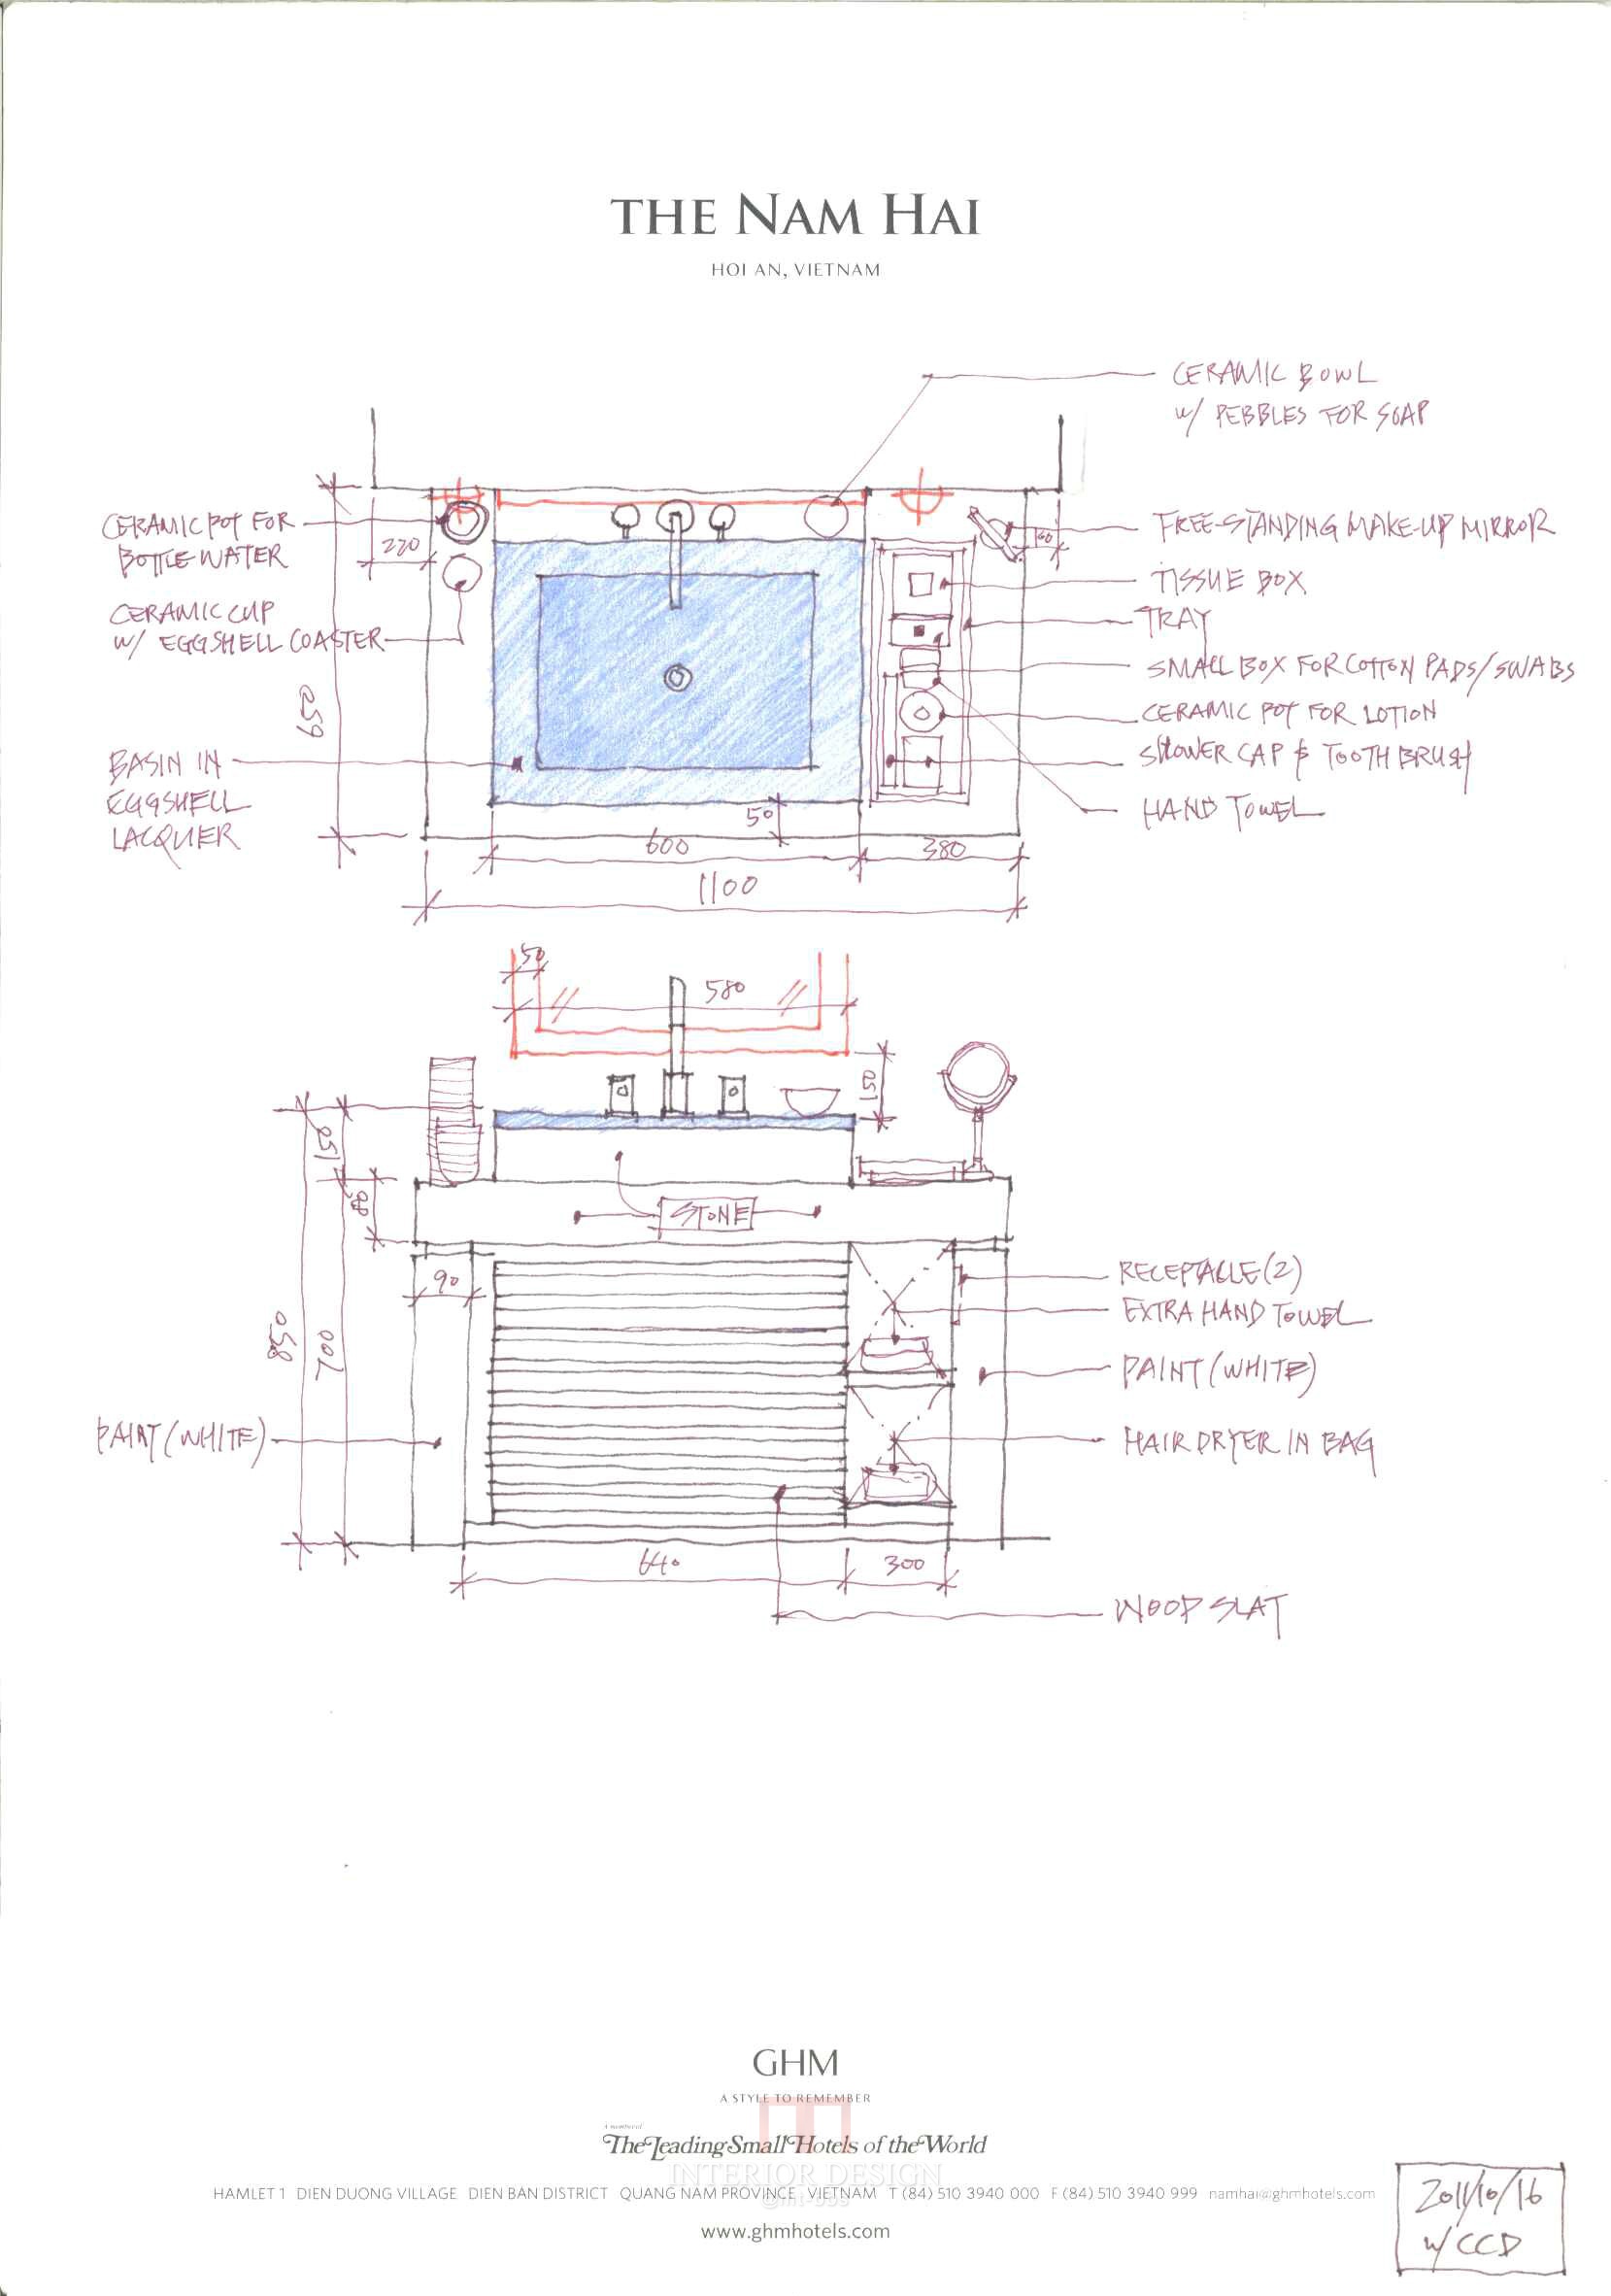 THE NAM HAI
HOI AN, VIETNAM
CERAMIC BOWL
w/ PEBBLES FOR SOAP
CERAMIC POT FOR
BOTTLE WATER
220
60
FREE-STANDING MAKE-UP MIRROR
TISSUE BOX
CERAMIC CUP
w/ EGGSHELL COASTER
TRAY
SMALL BOX FOR COTTON PADS/SWABS
650
CERAMIC POT FOR LOTION
BASIN IN
EGGSHELL
LACQUER
SHOWER CAP & TOOTH BRUSH
HAND TOWEL
50
600
380
1100
50
580
150
150
STONE
90
850
700
RECEPTACLE (2)
EXTRA HAND TOWEL
PAINT (WHITE)
PAINT (WHITE)
HAIR DRYER IN BAG
640
300
WOOD SLAT
GHM
A STYLE TO REMEMBER
A member of
The Leading Small Hotels of the World
INTERIOR DESIGN
HAMLET 1 DIEN DUONG VILLAGE DIEN BAN DISTRICT QUANG NAM PROVINCE VIETNAM T (84) 510 3940 000 F (84) 510 3940 999 namhai@ghmhotels.com
www.ghmhotels.com
2011/10/16
w/ CCD